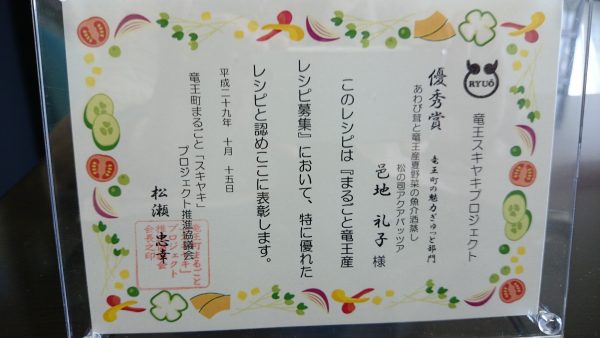 竜王スキヤキプロジェクト
RYUO
優秀賞 竜王町の魅力ぎゅっと部門
あわび茸と竜王産夏野菜の魚介酒蒸し
松の司アクアパッツァ
邑地 礼子 様
このレシピは『まるごと竜王産
レシピ募集』において、特に優れた
レシピと認めここに表彰します。
平成二十九年 十月 十五日
竜王町まるごと「スキヤキ」
プロジェクト推進協議会
松瀬 忠幸
竜王町まるごと
「スキヤキ」
プロジェクト
推進協議会
会長之印